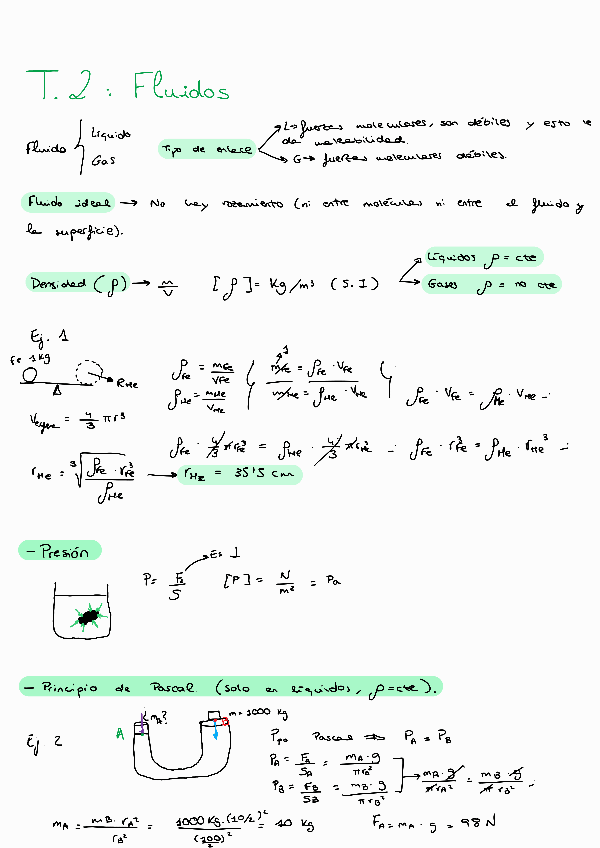 T.2: Fluidos
Fluido { Líquido
Gas
Tipo de enlace
L→ fuerzas moleculares, son débiles y esto le
da maleabilidad.
G→ fuerzas moleculares débiles.
Fluido ideal → No hay rozamiento (ni entre moléculas ni entre el fluido y
la superficie).
Densidad (ρ) → m/V [ρ] = Kg/m³ (S.I)
Líquidos ρ = cte
Gases ρ = no cte
Ej. 1
Fe 1kg
RHe
ρFe = mFe/VFe
ρHe = mHe/VHe
mFe/mHe = ρFe · VFe/ρHe · VHe
1
ρFe · VFe = ρHe · VHe
Vesfera = 4/3 πr³
ρFe · 4/3 πrFe³ = ρHe · 4/3 πrHe³ ρFe · rFe³ = ρHe · rHe³
rHe = ³√(ρFe · rFe³/ρHe) → rHe = 35'5 cm
- Presión
P = F/S Es ⊥ [P] = N/m² = Pa
- Principio de Pascal (solo en líquidos, ρ=cte).
Ej 2
A
¿mA?
B
m = 1000 Kg
Ppo Pascal ⇒ PA = PB
PA = FA/SA = mA · g/πrA²
PB = FB/SB = mB · g/πrB²
mA · g/πrA² = mB · g/πrB²
mA = mB · rA²/rB² = 1000 Kg · (10/2)²/(100/2)² = 10 kg FA = mA · g = 98 N